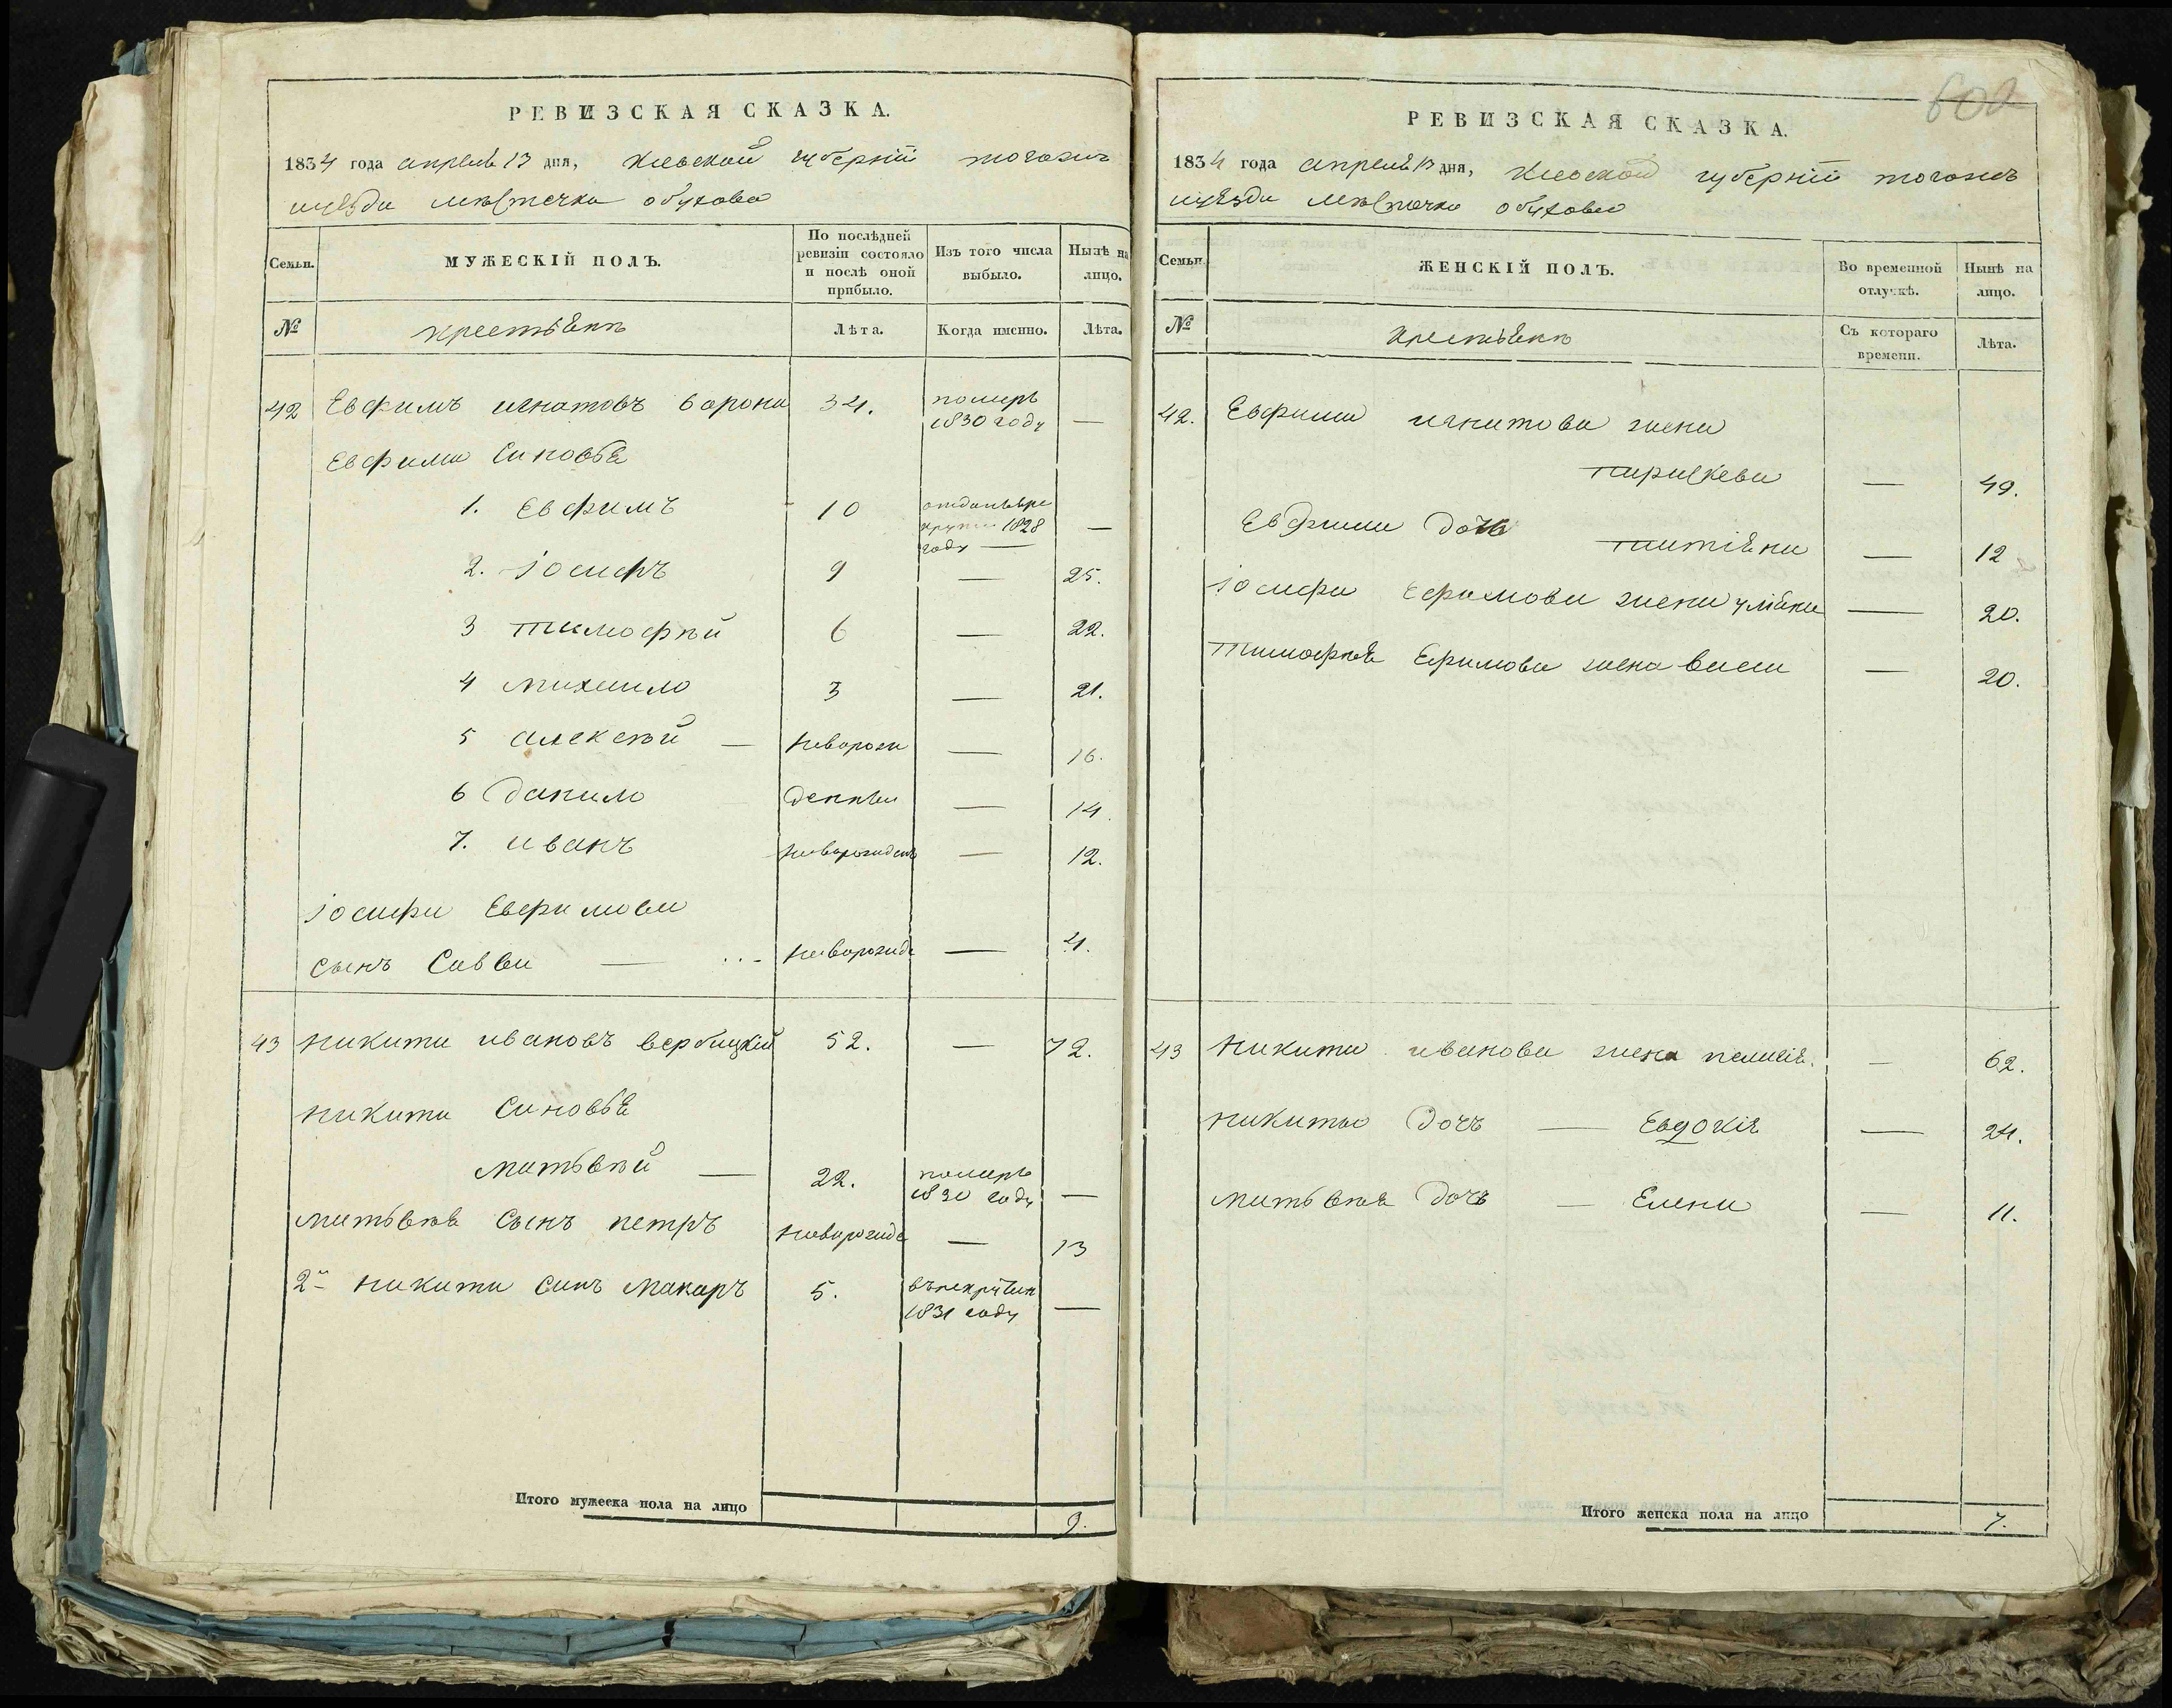 РЕВИЗСКАЯ СКАЗКА.
1834 года апреля 13 дня, Киевской губерніи тогожъ
уѣзда мѣстечка обухова
Семьи.
МУЖЕСКІЙ ПОЛЪ.
По послѣдней ревизіи состояло и послѣ оной прибыло.
Изъ того числа выбыло.
Нынѣ на лицо.
№
крестьянъ
Лѣта.
Когда именно.
Лѣта.
42 Евфимъ игнатовъ ворона 34. померъ 1830 году —
Евфима синовья
1. Евфимъ 10 отданъ вре
крути 1828
году —
2. іосифъ 9 — 25.
3 тимофѣй 6 — 22.
4 михаило 3 — 21.
5 алексѣй — новорож — 16.
6 данило денны — 14.
7. иванъ новорожденъ — 12.
іосифа Евфимова
сынъ Савва — новорожде — 4.
43 никита ивановъ вербицкій 52. — 72.
никиты синовья
матьвѣй — 22. померъ 1830 году —
матьвѣя сынъ петръ новорожде — 13
2й никиты синъ макаръ 5. въ рекруты
1831 году —
Итого мужеска пола на лицо 9.
602
РЕВИЗСКАЯ СКАЗКА.
1834 года апреля 13 дня, Киевской губерніи тогожъ
уѣзда мѣстечка обухова
Семьи.
ЖЕНСКІЙ ПОЛЪ.
Во временной отлучкѣ.
Нынѣ на лицо.
№
крестьянъ
Съ котораго времени.
Лѣта.
42. Евфима игнатова жена
параскева — 49.
Евфима дочь
татіяна — 12
іосифа Ефимова жена уліяна — 20.
тимофѣя Ефимова жена васса — 20.
43 никиты иванова жена пелагія. — 62.
никиты дочь — Евдокія — 24.
матьвѣя дочь — Елена — 11.
Итого женска пола на лицо 7.